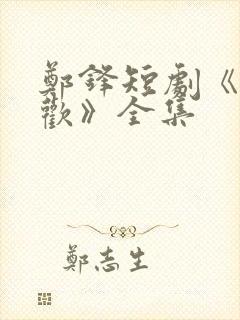 鄭鋒短劇《
歡》全集
鄭志生